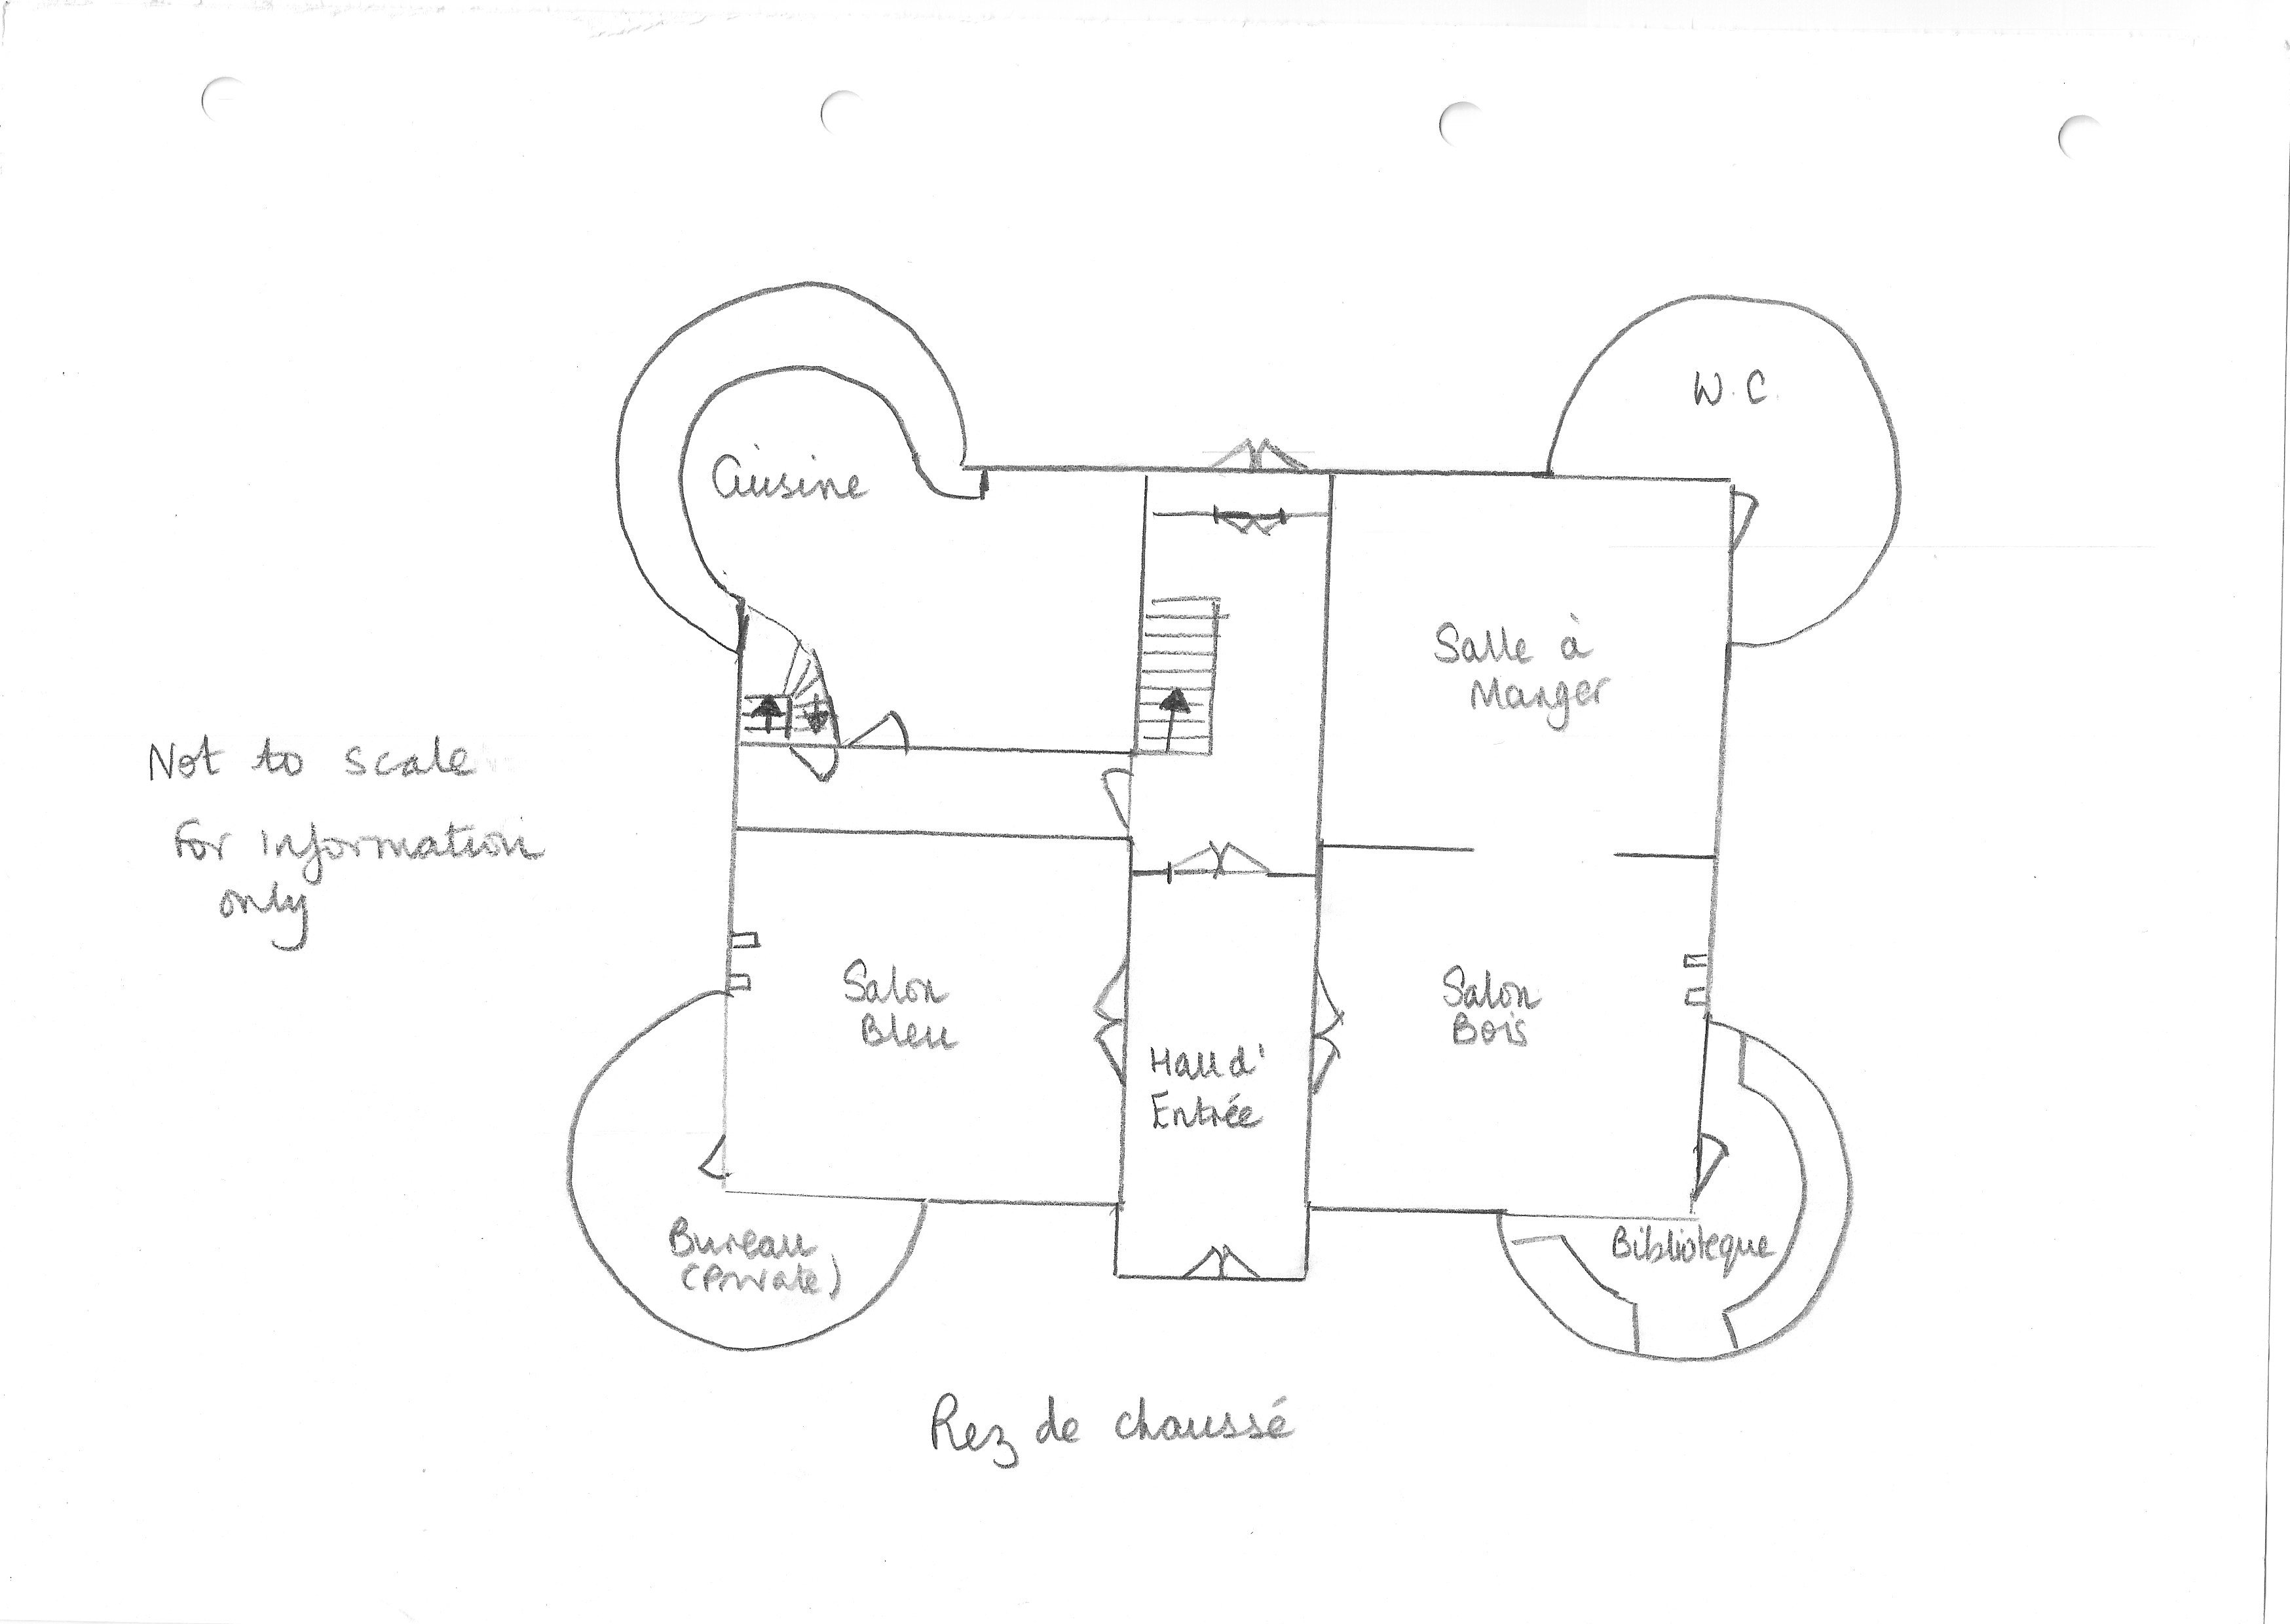 W.C.
Cuisine
Salle à
Manger
Not to scale
For information
only
Salon
Bleu
Salon
Bois
Hall d'
Entrée
Bureau
(Private)
Biblioteque
Rez de chaussé